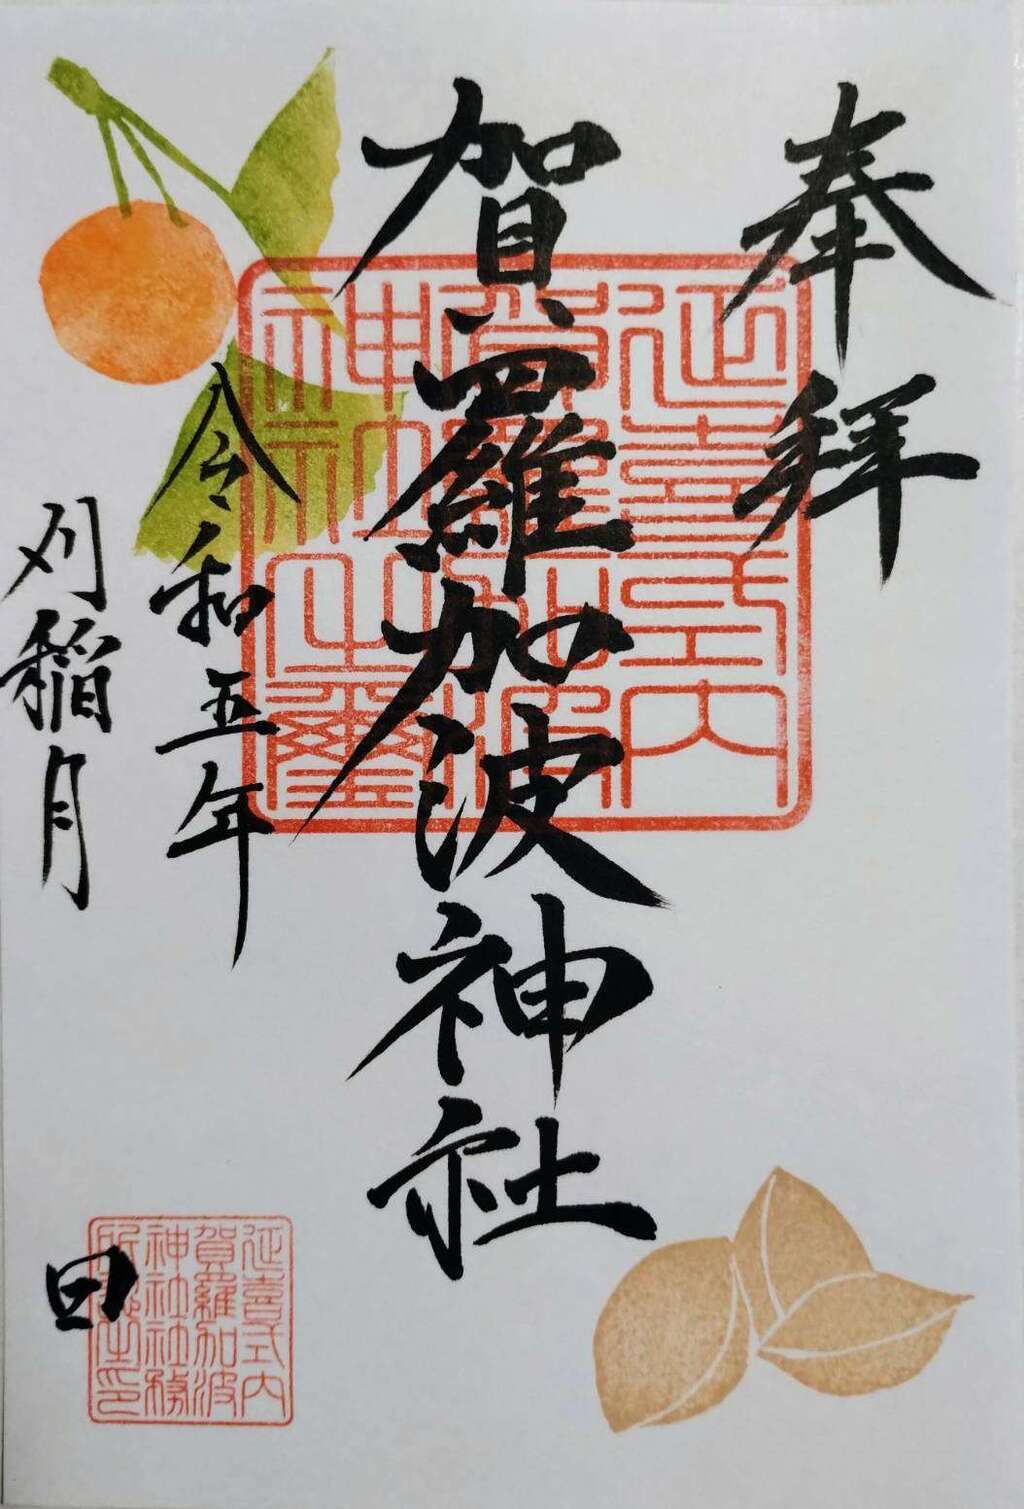 奉拝
延喜式内
賀羅加波
神社之璽
賀羅加波神社
令和五年
刈稲月
延喜式内
賀羅加波
神社社務
所之印
日